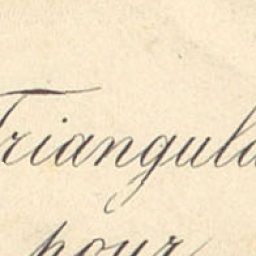 Triangula
pour